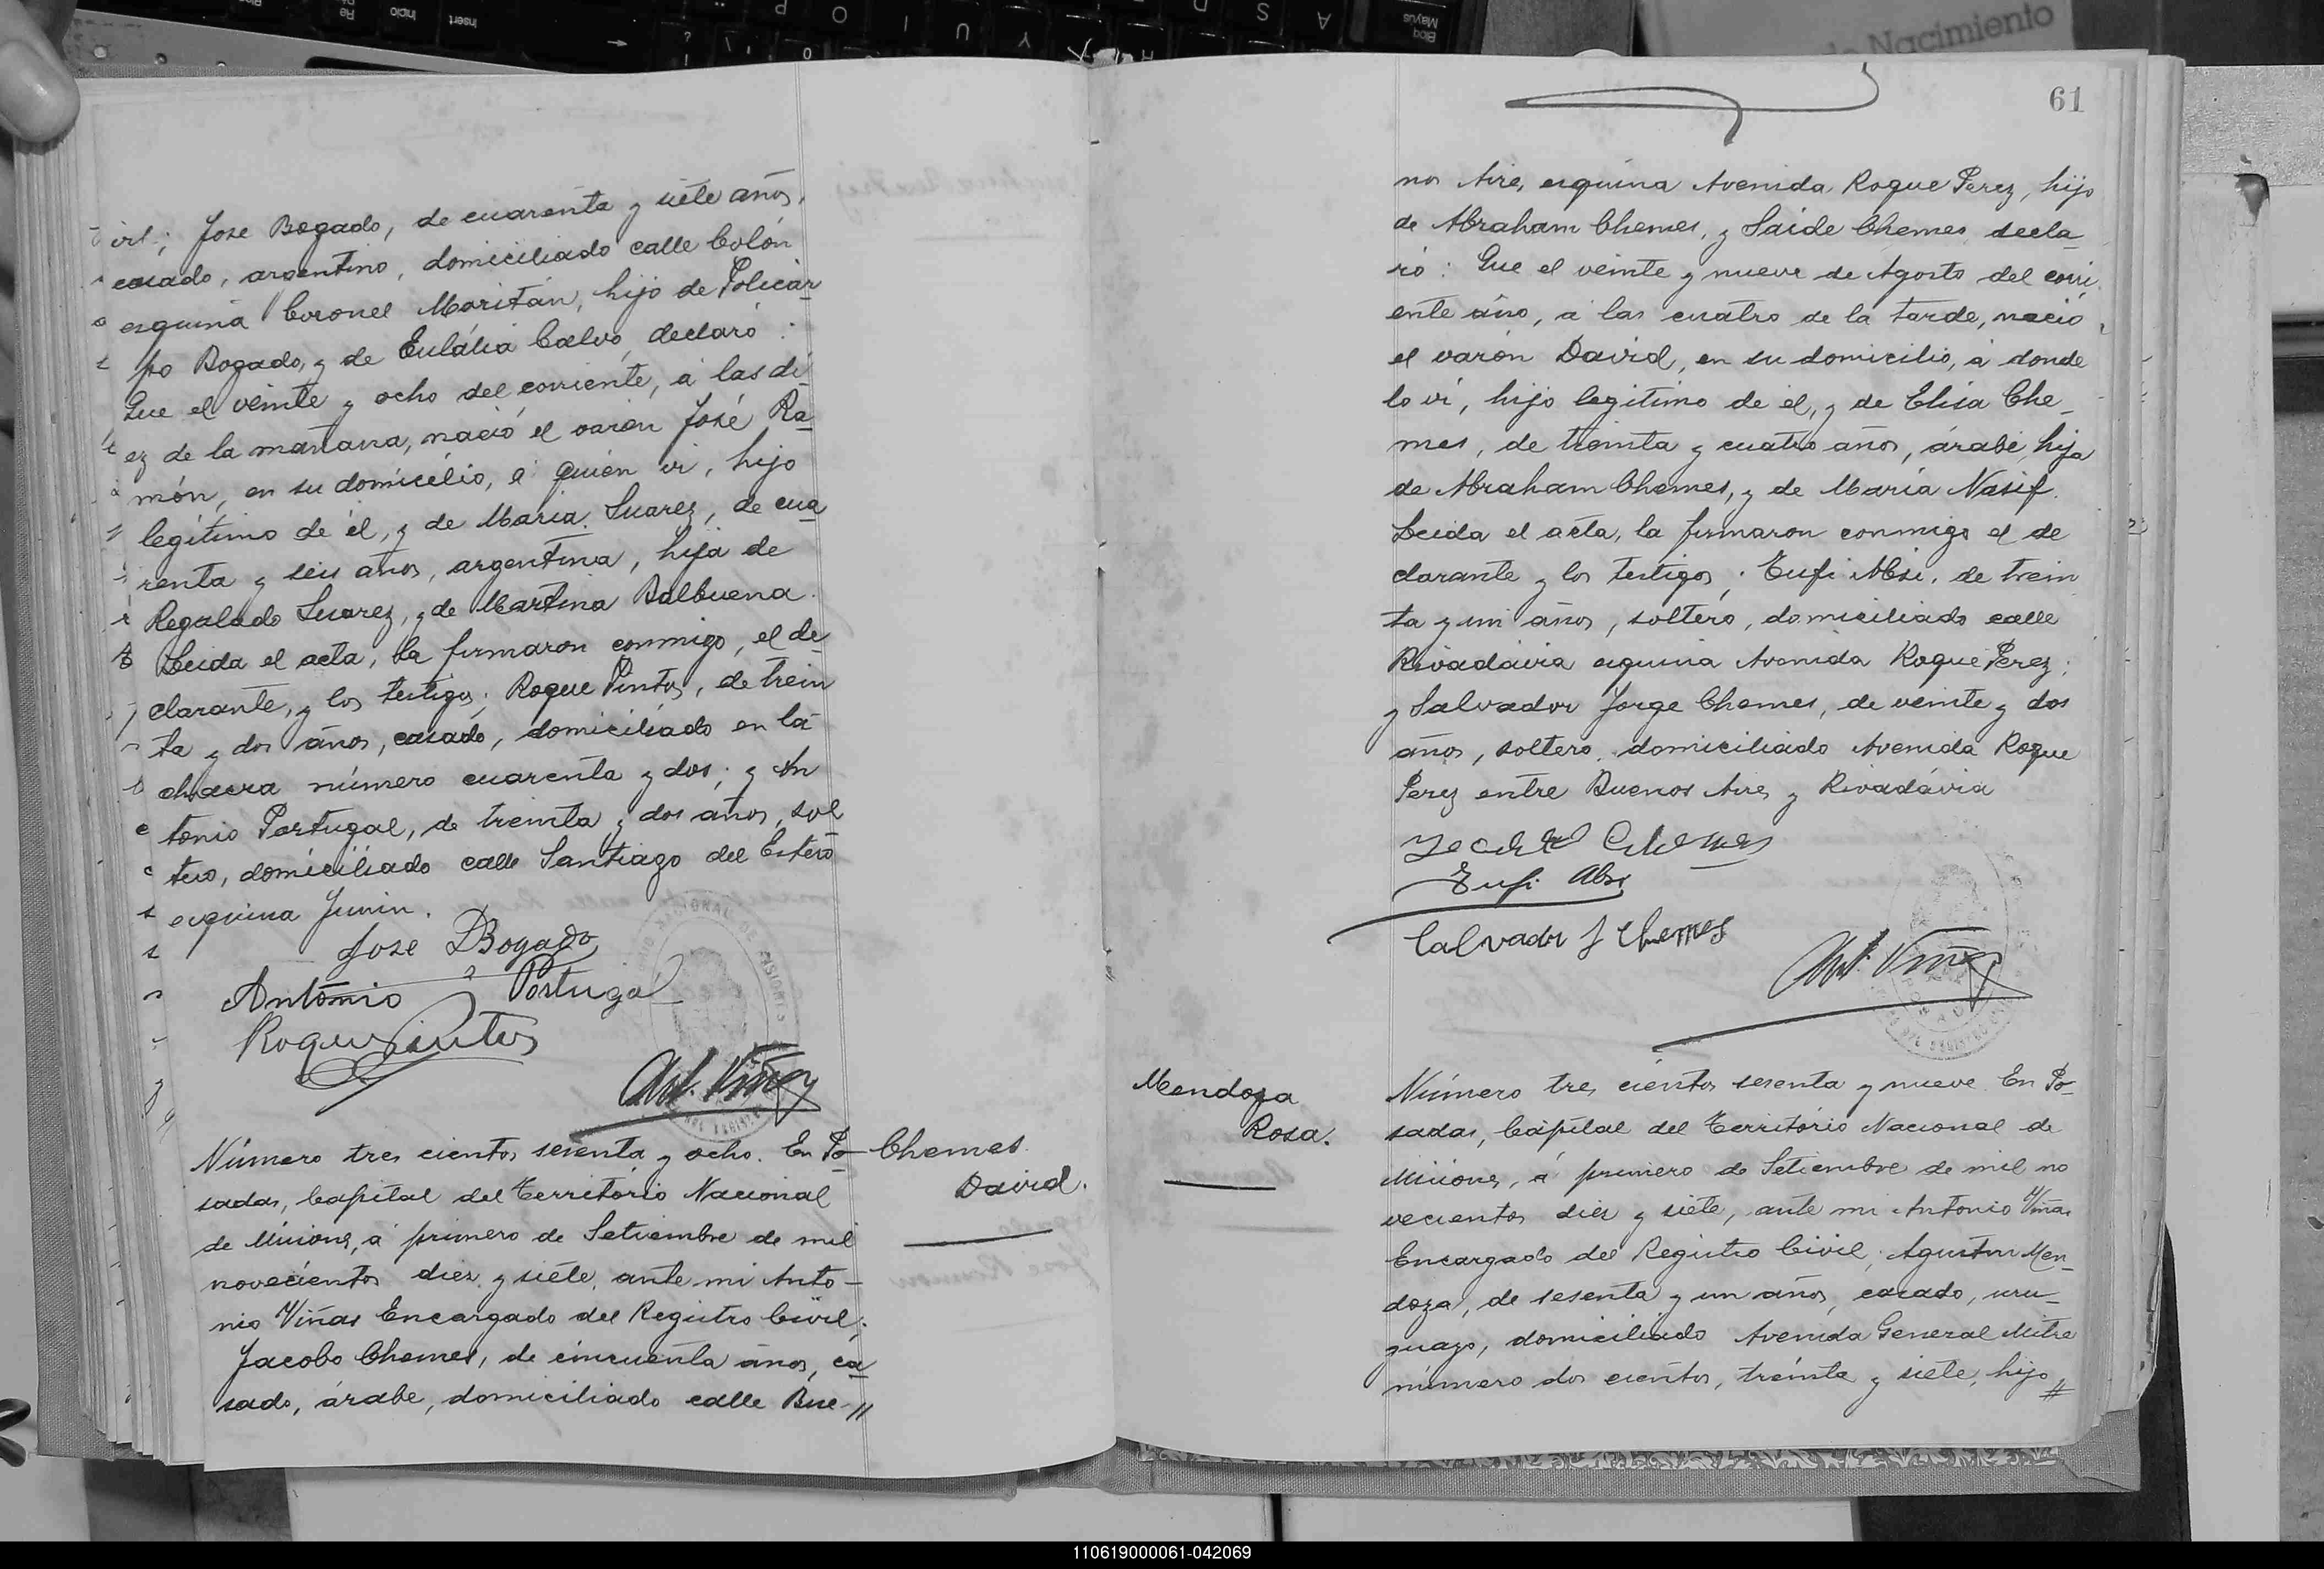 ivil; Jose Bogado, de cuarenta y siete años,
casado, argentino, domiciliado calle Colón
esquina Coronel Maritán, hijo de Policar
po Bogado, y de Eulália Calvo, declaró:
Que el veinte y ocho del corriente, á las di
ez de la mañana, nació el varon José Ra
món, en su domicilio, á quien vi, hijo
legitimo de él, y de Maria Suarez, de cua
renta y seis años, argentina, hija de
Regalado Suarez, y de Martina Balbuena.
Leida el acta, la firmaron conmigo, el de
clarante, y los testigos; Roque Pintos, de trein
ta y dos años, casado, domiciliado en la
chacra número cuarenta y dos; y An
tonio Portugal, de treinta y dos años, sol
tero, domiciliado calle Santiago del Estero
esquina Junin.
Jose Bogado
Antonio Portugal
Roque Pintos
Ant. Viñas
Número tres cientos sesenta y ocho. En Po
sadas, Capital del Território Nacional
de Misiones, á primero de Setiembre de mil
novecientos diez y siete, ante mi Anto-
nio Viñas Encargado del Registro Civil;
Jacobo Chemes, de cincuenta años, ca
sado, árabe, domiciliado calle Bue-//
Chemes
David.
61
nos Aires esquina Avenida Roque Perez, hijo
de Abraham Chemes, y Saide Chemes, decla
ró: Que el veinte y nueve de Agosto del corri
ente año, á las cuatro de la tarde, nació
el varón David, en su domicilio, á donde
lo vi, hijo legitimo de él, y de Elisa Che-
mes, de treinta y cuatro años, árabe, hija
de Abraham Chemes, y de Maria Nasif.
Leida el acta, la firmaron conmigo el de
clarante y los testigos; Tufi Absi, de trein
ta y un años, soltero, domiciliado calle
Rivadávia esquina Avenida Roque Perez;
y Salvador Jorge Chemes, de veinte y dos
años, soltero, domiciliado Avenida Roque
Perez entre Buenos Aires y Rivadávia
Chemes
Tufi Absi
Calvador J Chemes
Ant. Viñas
Mendoza
Rosa.
Número tres cientos sesenta y nueve. En Po-
sadas, Capital del Território Nacional de
Misiones, á primero de Setiembre de mil no
vecientos diez y siete, ante mi Antonio Viñas
Encargado del Registro Civil; Agustin Men-
doza, de sesenta y un años, casado, uru-
guayo, domiciliado Avenida General Mitre
número dos cientos, treinta y siete, hijo
Nacimiento
110619000061-042069